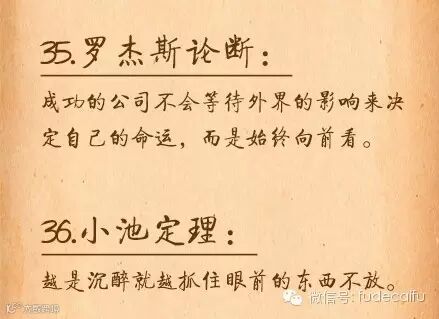 35.罗杰斯论断：
成功的公司不会等待外界的影响来决
定自己的命运，而是始终向前看。
36.小池定理：
越是沉醉就越抓住眼前的东西不放。
微信号: fudecaifu